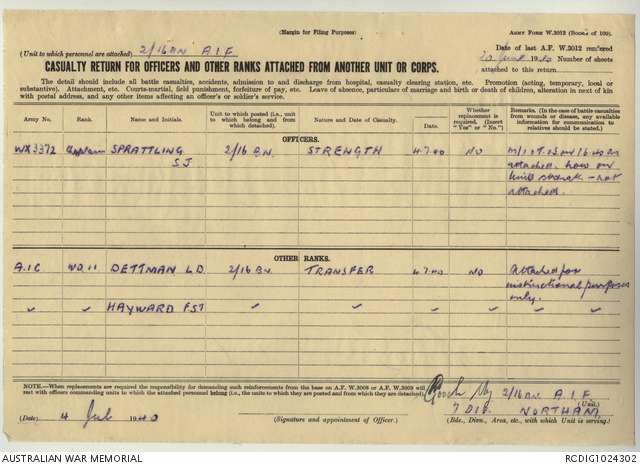 (Margin for Filing Purposes)
ARMY FORM W.3012 (Books of 100).
2/16 BN A.I.F.
(Unit to which personnel are attached)
Date of last A.F. W.3012 rendered
1940 Number of sheets
attached to this return
CASUALTY RETURN FOR OFFICERS AND OTHER RANKS ATTACHED FROM ANOTHER UNIT OR CORPS.
The detail should include all battle casualties, accidents, admission to and discharge from hospital, casualty clearing station, etc. Promotion (acting, temporary, local or
substantive). Attachment, etc. Courts-martial, field punishment, forfeiture of pay, etc. Leave of absence, particulars of marriage and birth or death of children, alteration in next of kin
with postal address, and any other items affecting an officer's or soldier's service.
Army No. Rank. Name and Initials. Unit to which posted (i.e., unit to which belong and from which detached). Nature and Date of Casualty. Date. Whether replacement is required. (Insert "Yes" or "No.") Remarks. (In the case of battle casualties from wounds or disease, any available information for communication to relatives should be stated.)
OFFICERS.
WX3372 Captain SPRATTLING S J 2/16 BN STRENGTH 4.7.40 NO
attached. now on
unit strength - not
attached.
OTHER RANKS.
A.I.C WO.11 DETTMAN L.D. 2/16 BN TRANSFER 4.7.40 NO Attached for
instructional purposes
only.
" " HAYWARD F ST " " " " "
NOTE.—When replacements are required the responsibility for demanding such reinforcements from the base on A.F. W.3008 or A.F. W.3009 will
rest with officers commanding units to which the attached personnel belong (i.e., the units to which they are posted and from which they are detached).
2/16 BN A.I.F.
(Unit.)
7 DIV. NORTHAM
(Date) 4 Jul 1940
(Signature and appointment of Officer.)
(Bde., Divn., Area, etc., with which Unit is serving.)
AUSTRALIAN WAR MEMORIAL
RCDIG1024302